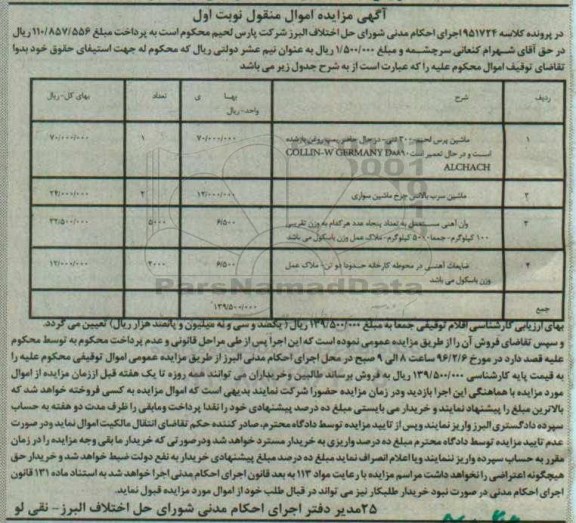 آگهی مزایده اموال منقول نوبت اول
در پرونده کلاسه ۹۵۱۷۲۴ اجرای احکام مدنی شورای حل اختلاف البرز شرکت پارس لحیم محکوم است به پرداخت مبلغ ۱۱۰/۸۵۷/۵۵۶ ریال
در حق آقای شهرام کنعانی سرچشمه و مبلغ ۱/۵۰۰/۰۰۰ ریال به عنوان نیم عشر دولتی ریال که محکوم له جهت استیفای حقوق خود بدوا
تقاضای توقیف اموال محکوم علیه را که عبارت است از به شرح جدول زیر می باشد
ردیف شرح بهای واحد-ریال تعداد بهای کل-ریال
۱ ماشین پرس لحیم ۳۰۰ تنی - در حال حاضر پمپ روغن باز شده ۷۰/۰۰۰/۰۰۰ ۱ ۷۰/۰۰۰/۰۰۰
است و در حال تعمیر است COLLIN-W GERMANY D۸۸۹۰
ALCHACH
۲ ماشین سرب بالانس چرخ ماشین سواری ۱۲/۰۰۰/۰۰۰ ۲ ۲۴/۰۰۰/۰۰۰
۳ وان آهنی مستعمل به تعداد پنجاه عدد هر کدام به وزن تقریبی ۶/۵۰۰ ۵۰۰۰ ۳۲/۵۰۰/۰۰۰
۱۰۰ کیلوگرم - جمعا ۵۰۰۰ کیلوگرم - ملاک عمل وزن باسکول می باشد
۴ ضایعات آهنی در محوطه کارخانه حدودا دو تن - ملاک عمل ۶/۵۰۰ ۲۰۰۰ ۱۳/۰۰۰/۰۰۰
وزن باسکول می باشد
جمع ۱۳۹/۵۰۰/۰۰۰
ParsNamadData
بهای ارزیابی کارشناسی اقلام توقیفی جمعا به مبلغ ۱۳۹/۵۰۰/۰۰۰ ریال (یکصد و سی و نه میلیون و پانصد هزار ریال) تعیین می گردد.
و سپس تقاضای فروش آن را از طریق مزایده عمومی نموده است که این اجرا پس از طی مراحل قانونی و عدم پرداخت محکوم به توسط محکوم
علیه قصد دارد در مورخ ۹۶/۲/۶ ساعت ۸ الی ۹ صبح در محل اجرای احکام مدنی البرز از طریق مزایده عمومی اموال توقیفی محکوم علیه را
به قیمت پایه کارشناسی ۱۳۹/۵۰۰/۰۰۰ ریال به فروش برساند طالبین و خریداران می توانند همه روزه تا یک هفته قبل از زمان مزایده از اموال
مورد مزایده با هماهنگی این اجرا بازدید و در زمان مزایده حضورا شرکت نمایند بدیهی است که اموال مزایده به کسی فروخته خواهد شد که
بالاترین مبلغ را پیشنهاد نمایند و خریدار می بایستی مبلغ ده درصد پیشنهادی خود را نقدا پرداخت و مابقی را ظرف مدت دو هفته به حساب
سپرده دادگستری البرز واریز نمایند و پس از تایید مزایده توسط دادگاه محترم، صادر کننده حکم تقاضای انتقال مالکیت اموال نماید و در صورت
عدم تایید مزایده توسط دادگاه محترم مبلغ ده درصد واریزی به خریدار مسترد خواهد شد و در صورتی که خریدار ما بقی وجه مزایده را در زمان
مقرر به حساب سپرده واریز ننماید و یا اعلام انصراف نماید مبلغ ده درصد مبلغ پیشنهادی خریدار به نفع دولت ضبط خواهد شد و خریدار حق
هیچگونه اعتراضی را نخواهد داشت مراسم مزایده با رعایت مواد ۱۱۳ به بعد قانون اجرای احکام مدنی اجرا خواهد شد به استناد ماده ۱۳۱ قانون
اجرای احکام مدنی در صورت نبود خریدار طلبکار نیز می تواند در قبال طلب خود از اموال مورد مزایده قبول نماید.
۲۵ مدیر دفتر اجرای احکام مدنی شورای حل اختلاف البرز - نقی لو